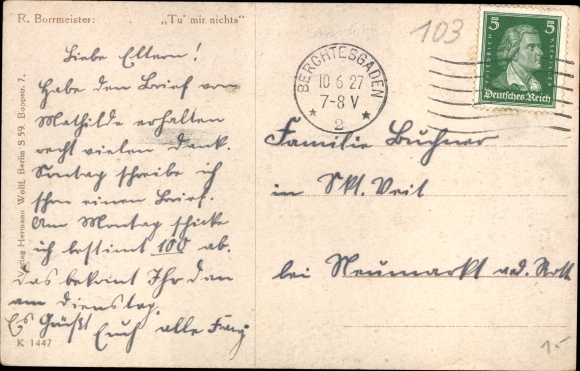 R. Borrmeister: „Tu' mir nichts"
Liebe Eltern!
Habe den Brief von
Mathilde erhalten
recht vielen Dank.
Sontag schreibe ich
schon einen Brief.
Am Montag schicke
ich bestimt 100 ab.
Das bekomt Ihr dan
am Dienstag.
Es Grüßt
Euch alle Franz
K 1447
Verlag Hermann Wolff, Berlin S 59, Boppstr. 7.
103
BERCHTESGADEN
10 6 27
7-8 V
* 2 *
5 5
FRIEDRICH V. SCHILLER
Deutsches Reich
Familie Buchner
in Skt. Veit
bei Neumarkt a.d. Rott
1.-